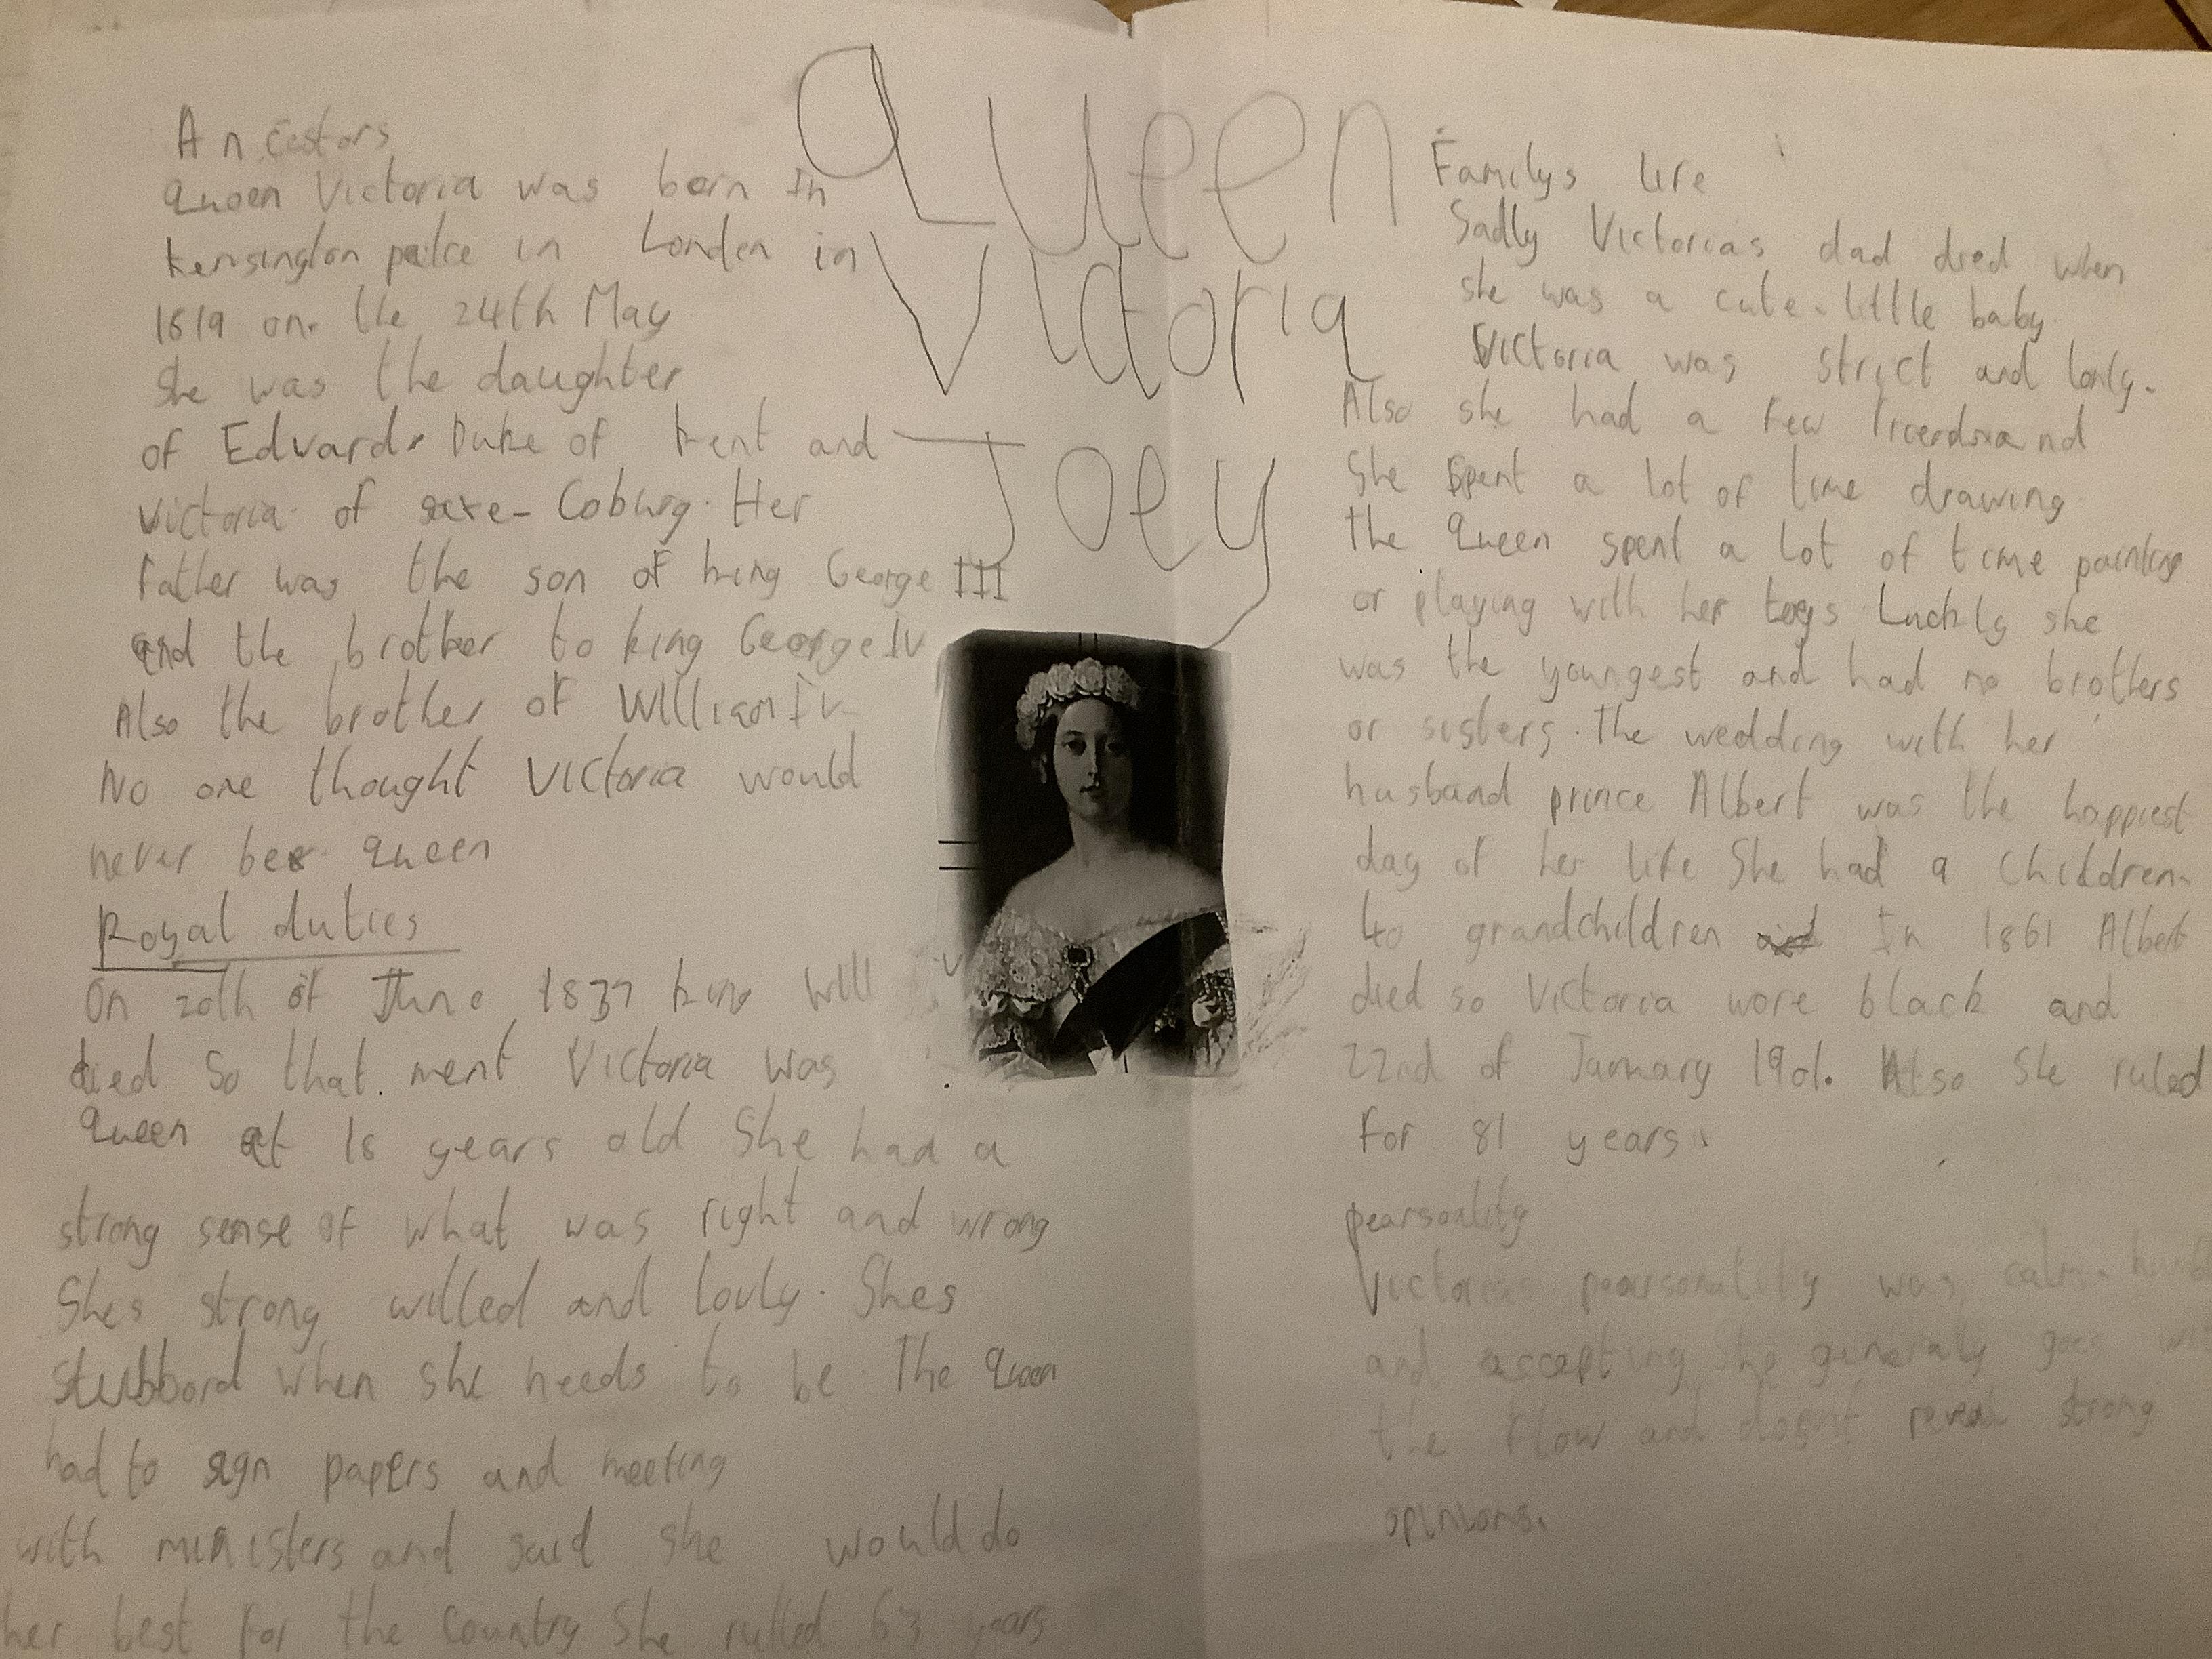 Queen
Victoria
Joey
Ancestors
Queen Victoria was born In
Kensington palce in London in
1819 on. the 24th May
She was the daughter
of Edward Duke of Kent and
Victoria of saxe-Coburg. Her
father was the son of king George III
and the brother to king George IV
Also the brother of William Iv
No one thought Victoria would
never be queen
Royal duties
On 20th of June 1837 king Will
died So that. ment Victoria was
Queen at 18 years old She had a
strong sense of what was right and wrong
Shes strong willed and lovly. Shes
Stubbord when she needs to be. The Queen
had to sign papers and meeting
with ministers and said she would do
her best for the country She rulled 63 years
Familys life
Sadly Victorias dad died when
she was a cute little baby
Victoria was strict and lonly.
Also she had a few and
She spent a lot of time drawing
the Queen spent a lot of time painting
or playing with her toys Luckly she
was the youngest and had no brothers
or sisters. The wedding with her
husband prince Albert was the happiest
day of her life She had 9 Children.
40 grandchildren In 1861 Albert
died so Victoria wore black and
22nd of January 1901. Also She ruled
for 81 years.
pearsoality
Victorias pearsonality was calm.
and accepting She generaly goes
the flow and dosent reveal strong
opinions.